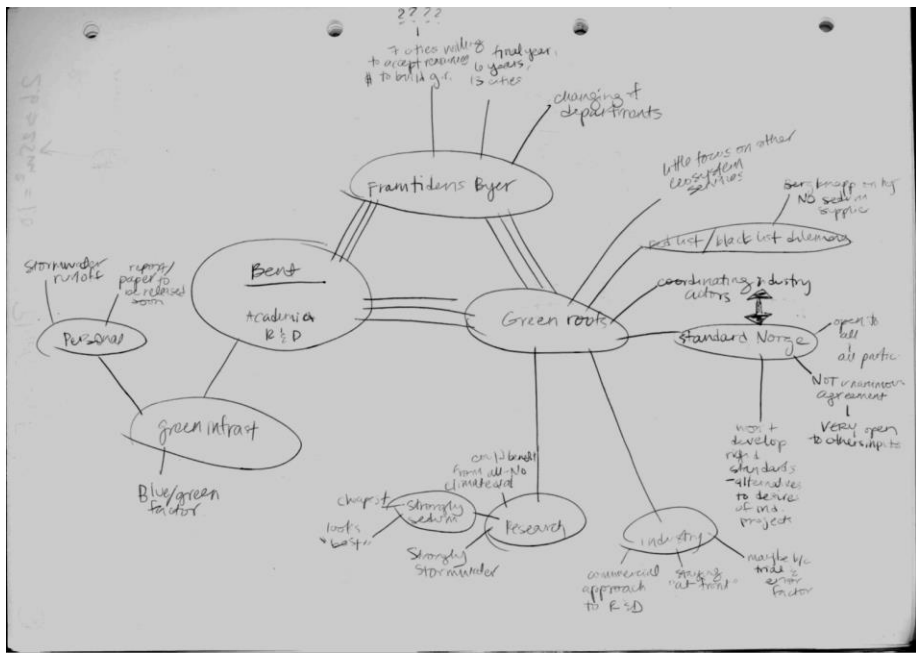 ????
7 cities willing
to accept
$ to build g.r.
final year,
6 years,
13 cities
changing of
departments
Framtidens Byer
little focus on other
ecosystem
services
NO sedum
red list/black list dilemma
coordinating industry
actors
Bent
Academia
R&D
Green roofs
standard Norge
open to
all
NOT unanimous
agreement
VERY open
to others inputs
develop
rigid
standards
-alternatives
to desires
of ind.
projects
stormwater
runoff
report/
paper to
be released
soon
Personal
green infrast
Blue/green
factor
could benefit
from all-No
cheapest
strongly
sedum
looks
best
Strongly
stormwater
Research
industry
commercial
approach
to R&D
staying
"at front"
maybe b/c
trial &
error
factor